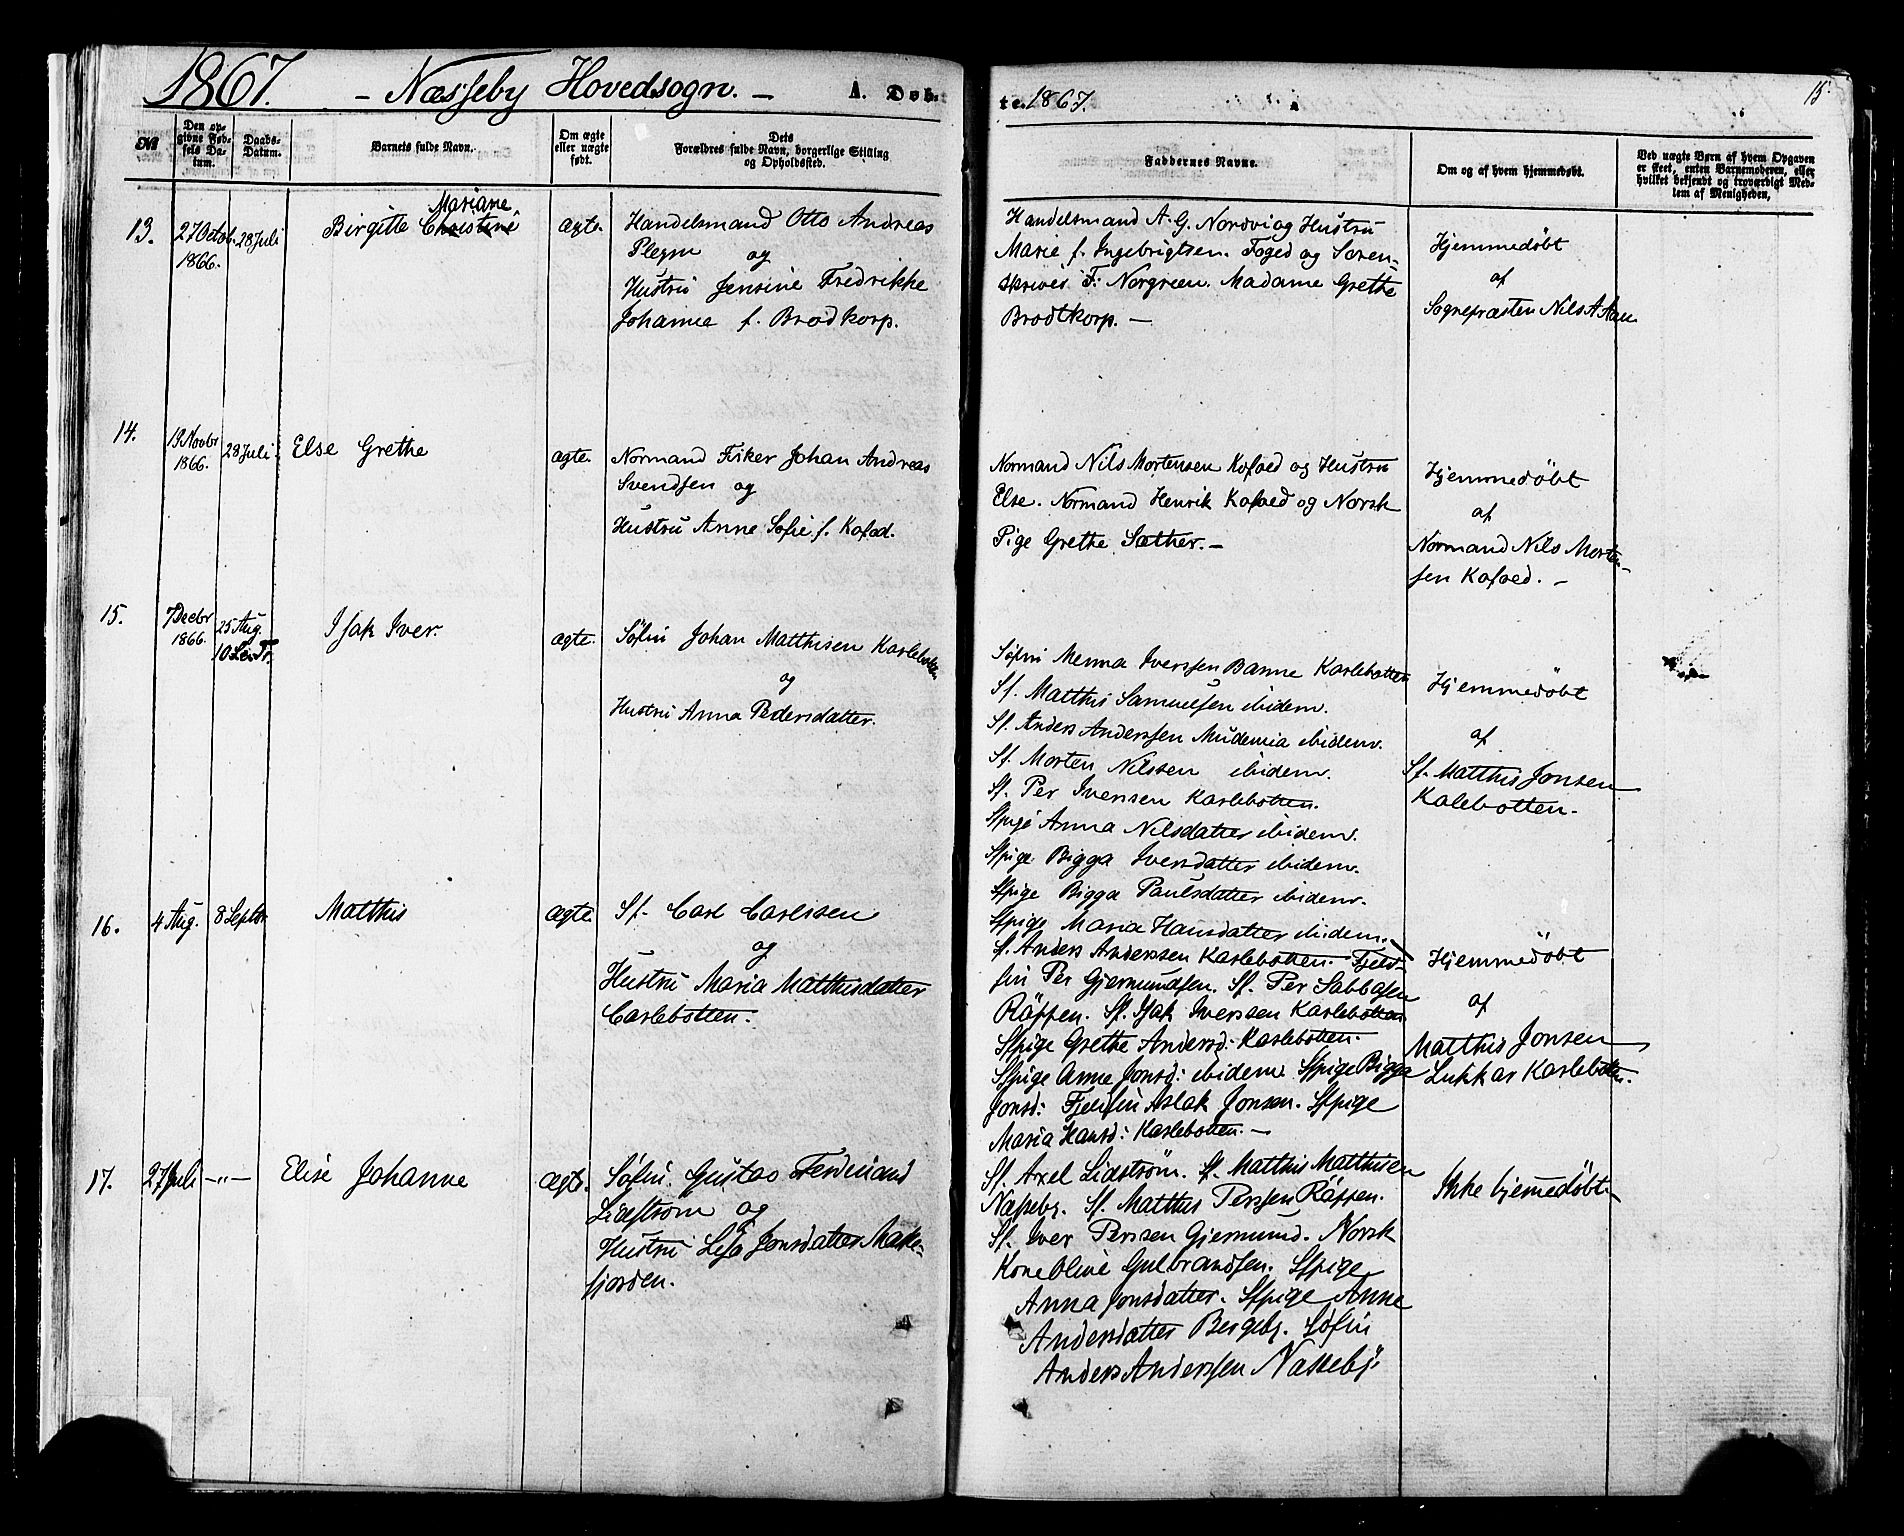 1867. - Næsseby Hovedsogn. - A. Døb-
te. 1867. 15.
№
Den op-
givne Fød-
sels Da-
tum.
Daabs-
Datum.
Barnets fulde Navn.
Om ægte
eller uægte
født.
Dets
Forældres fulde Navn, borgerlige Stilling
og Opholdssted.
Faddernes Navne.
Om og af hvem hjemmedøbt.
Ved uægte Børn af hvem Opgaven
er skeet, enten Barnemoderen, eller
hvilket bekjendt og troværdigt Med-
lem af Menigheden,
13.
27 Octob.
1866.
28 Juli
Mariane
Birgitte Christine
ægte.
Handelsmand Otto Andreas
Pleym og
Hustru Jensine Fredrikke
Johanne f. Brodkorp.
Handelsmand A. G. Nordvi og Hustru
Marie f. Ingebrigtsen. Foged og Soren-
skriver F. Norgreen. Madame Grethe
Brodtkorp. -
Hjemmedøbt
af
Sognepræsten Nils A Aan
14.
19 Novbr
1866.
28 Juli
Else Grethe
ægte.
Normand Fisker Johan Andreas
Svendsen og
Hustru Anne Sofie f. Kofod.
Normand Nils Mortensen Kofoed og Hustru
Else. Normand Henrik Kofoed og Norsk
Pige Grethe Sæther. -
Hjemmedøbt
af
Normand Nils Morten-
sen Kofoed. -
15.
7 Decbr
1866.
25 Aug.
10 S. e. Tr.
Isak Iver.
ægte.
Søfin Johan Matthisen Karlebotten
og
Hustru Anna Pedersdatter.
Søfin Menna Iverssen Banne Karlebotten
Sf. Matthis Samuelsen ibidem.
Sf. Anders Anderssen Mudenia ibidem.
Sf. Morten Nilssen ibidem.
Sf. Per Iverssen Karlebotten.
Sfpige Anna Nilsdatter ibidem.
Sfpige Bigga Iversdatter ibidem.
Sfpige Bigga Paulsdatter ibidem.
Sfpige Maria Hansdatter ibidem.
Hjemmedøbt
af
Sf. Matthis Jonsen
Kalebotten.
16.
4 Aug.
8 Septbr
Matthis
ægte.
Sf. Carl Carlssen
og
Hustru Maria Matthisdatter
Carlebotten.
Sf. Anders Anderssen Karlebotten. Fjeld-
fin Per Gjermundsen. Sf. Per Sabbasen
Råppen. Sf. Isak Iverssen Karlebotten
Sfpige Grethe Andersd: Karlebotten.
Sfpige Anne Jonsd: ibidem. Sfpige Bigga
Jonsd: Fjeldfin Aslak Jonsen. Sfpige
Maria Hansd: Karlebotten. -
Hjemmedøbt
af
Matthis Jonsen
Lukkar Karlebotten.
17.
27 Juli
-"-
Elise Johanne
ægte.
Søfin. Gustav Ferdinand
Lidstrøm og
Hustru Lisa Jonsdatter Make-
fjorden.
Sf. Axel Lidstrøm. Sf. Matthis Matthisen
Næsseby. Sf. Matthis Perssen Råppen.
Sf. Iver Perssen Gjermund. Norsk
Kone Oline Gulbrandsen. Sfpige
Anna Jonsdatter. Sfpige Anne
Andersdatter Bergeby. Søfin
Anders Anderssen Næsseby.
Ikke hjemedøbt.